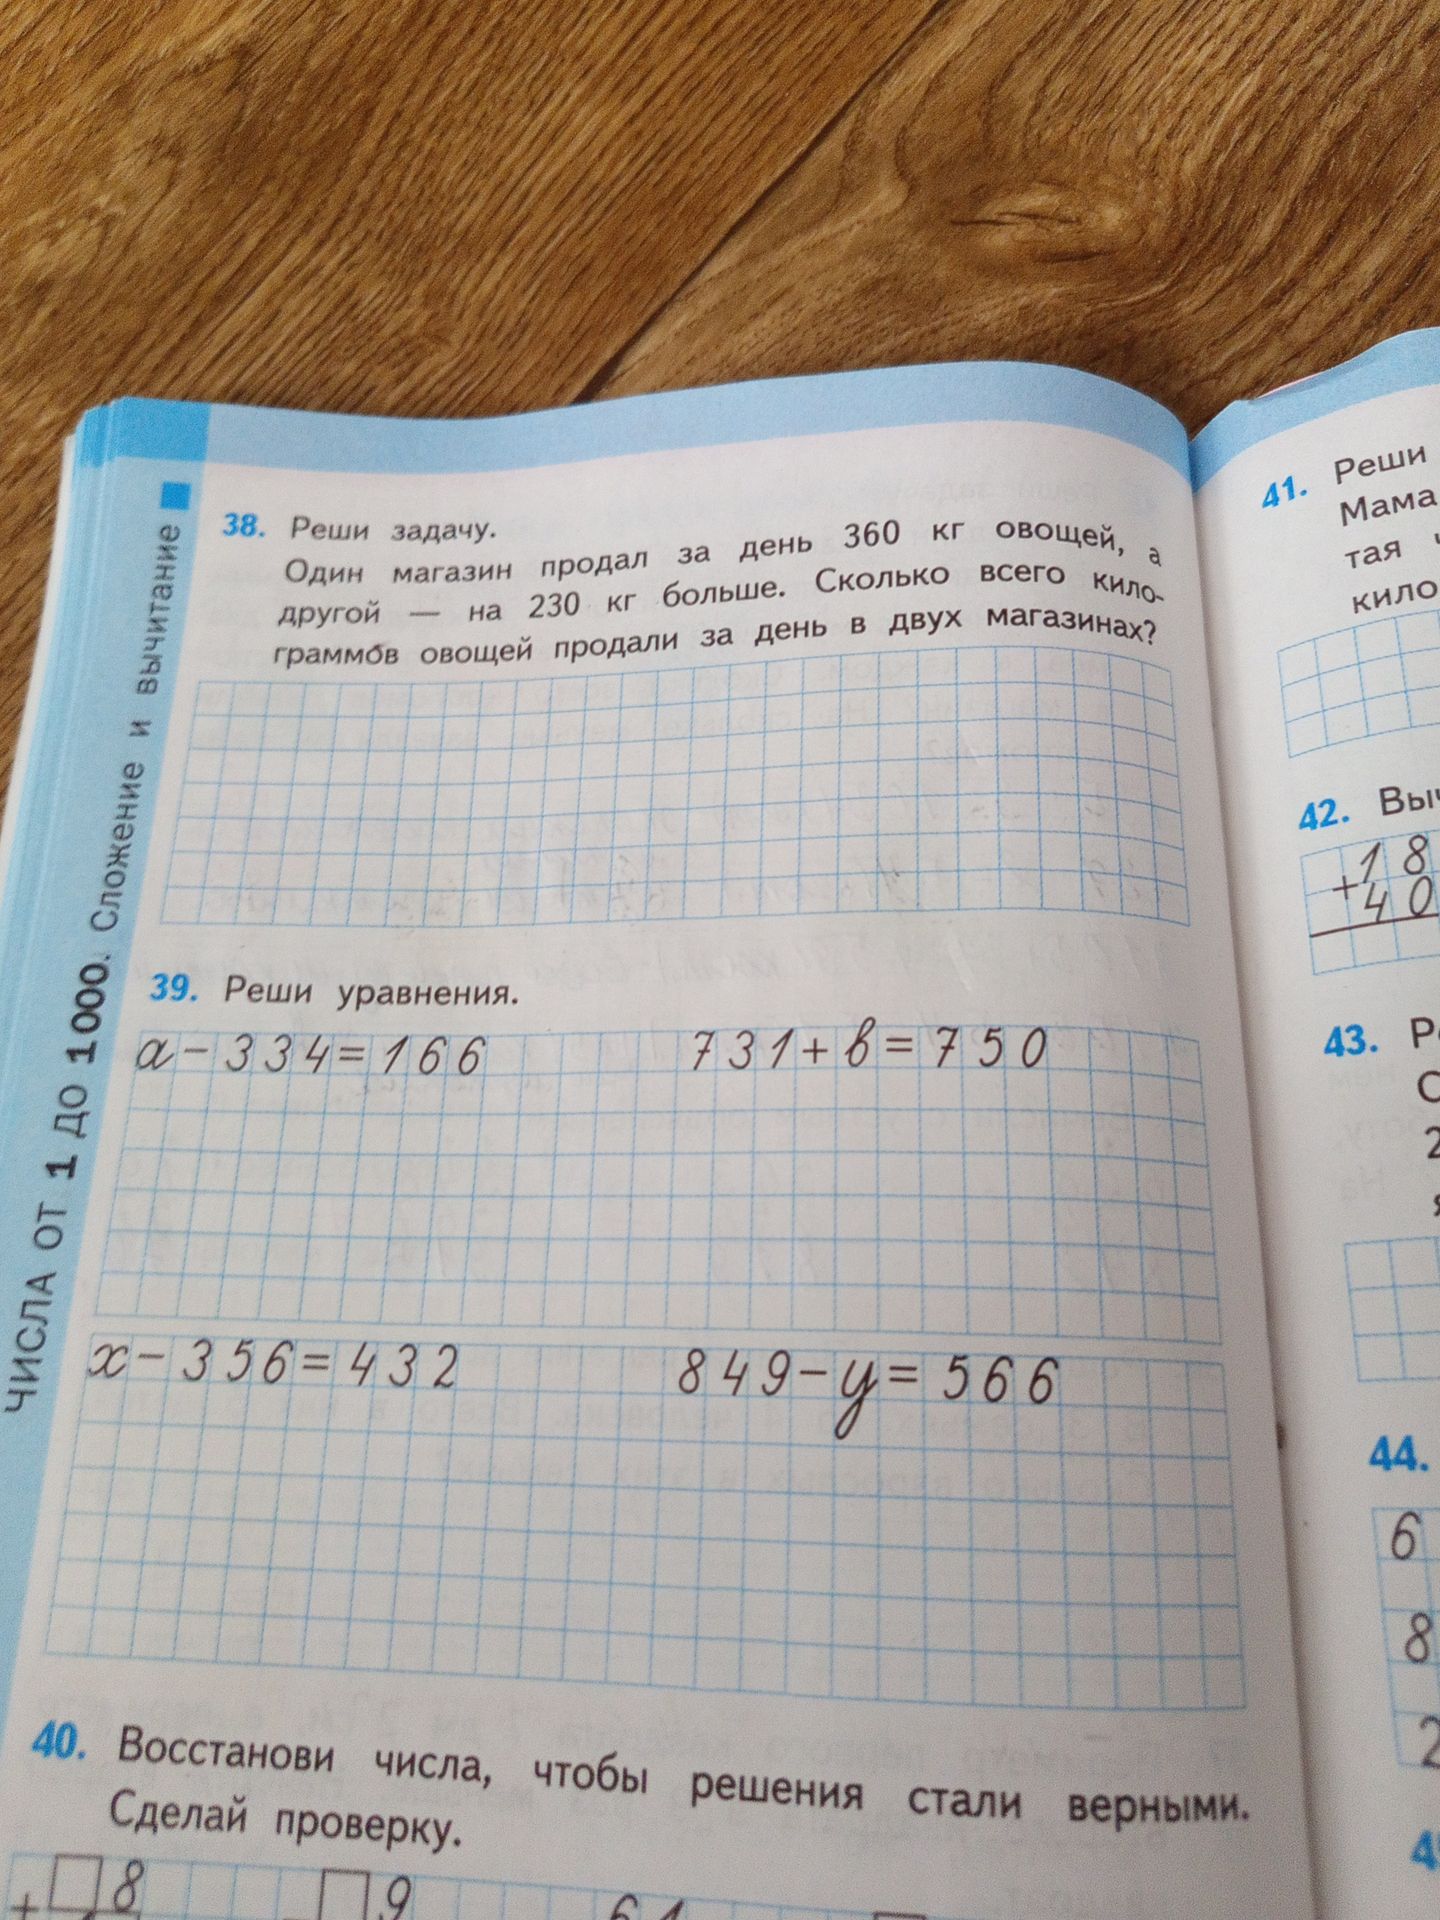 ЧИСЛА ОТ 1 ДО 1000. Сложение и вычитание
38. Реши задачу.
Один магазин продал за день 360 кг овощей, а
другой — на 230 кг больше. Сколько всего кило-
граммов овощей продали за день в двух магазинах?
39. Реши уравнения.
a - 334 = 166 731 + в = 750
x - 356 = 432 849 - y = 566
40. Восстанови числа, чтобы решения стали верными.
Сделай проверку.
+ □8 □9
41. Реши
Мама
тая
кило
42.
18
+ 40
43.
44.
6
8
2